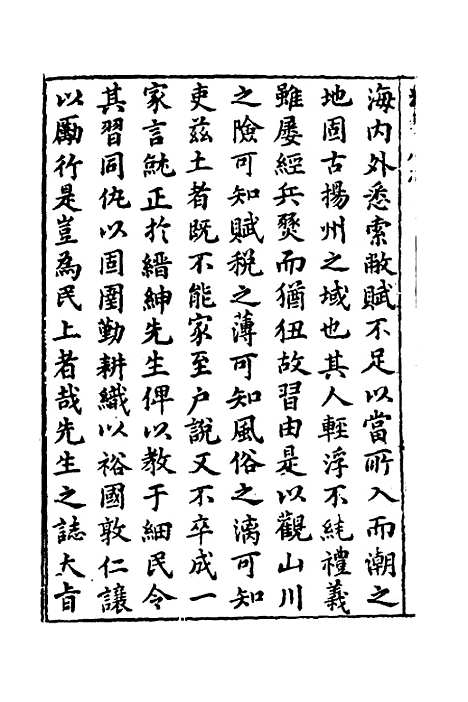 海内外悉索敝賦不足以當所入而潮之
地固古揚州之域也其人輕浮不純禮義
雖屢經兵燹而猶狃故習由是以觀山川
之險可知賦稅之薄可知風俗之漓可知
吏茲土者既不能家至户說又不卒成一
家言就正於縉紳先生俾以教于細民令
其習同仇以固圉勤耕織以裕國敦仁讓
以勵行是豈為民上者哉先生之誌大旨